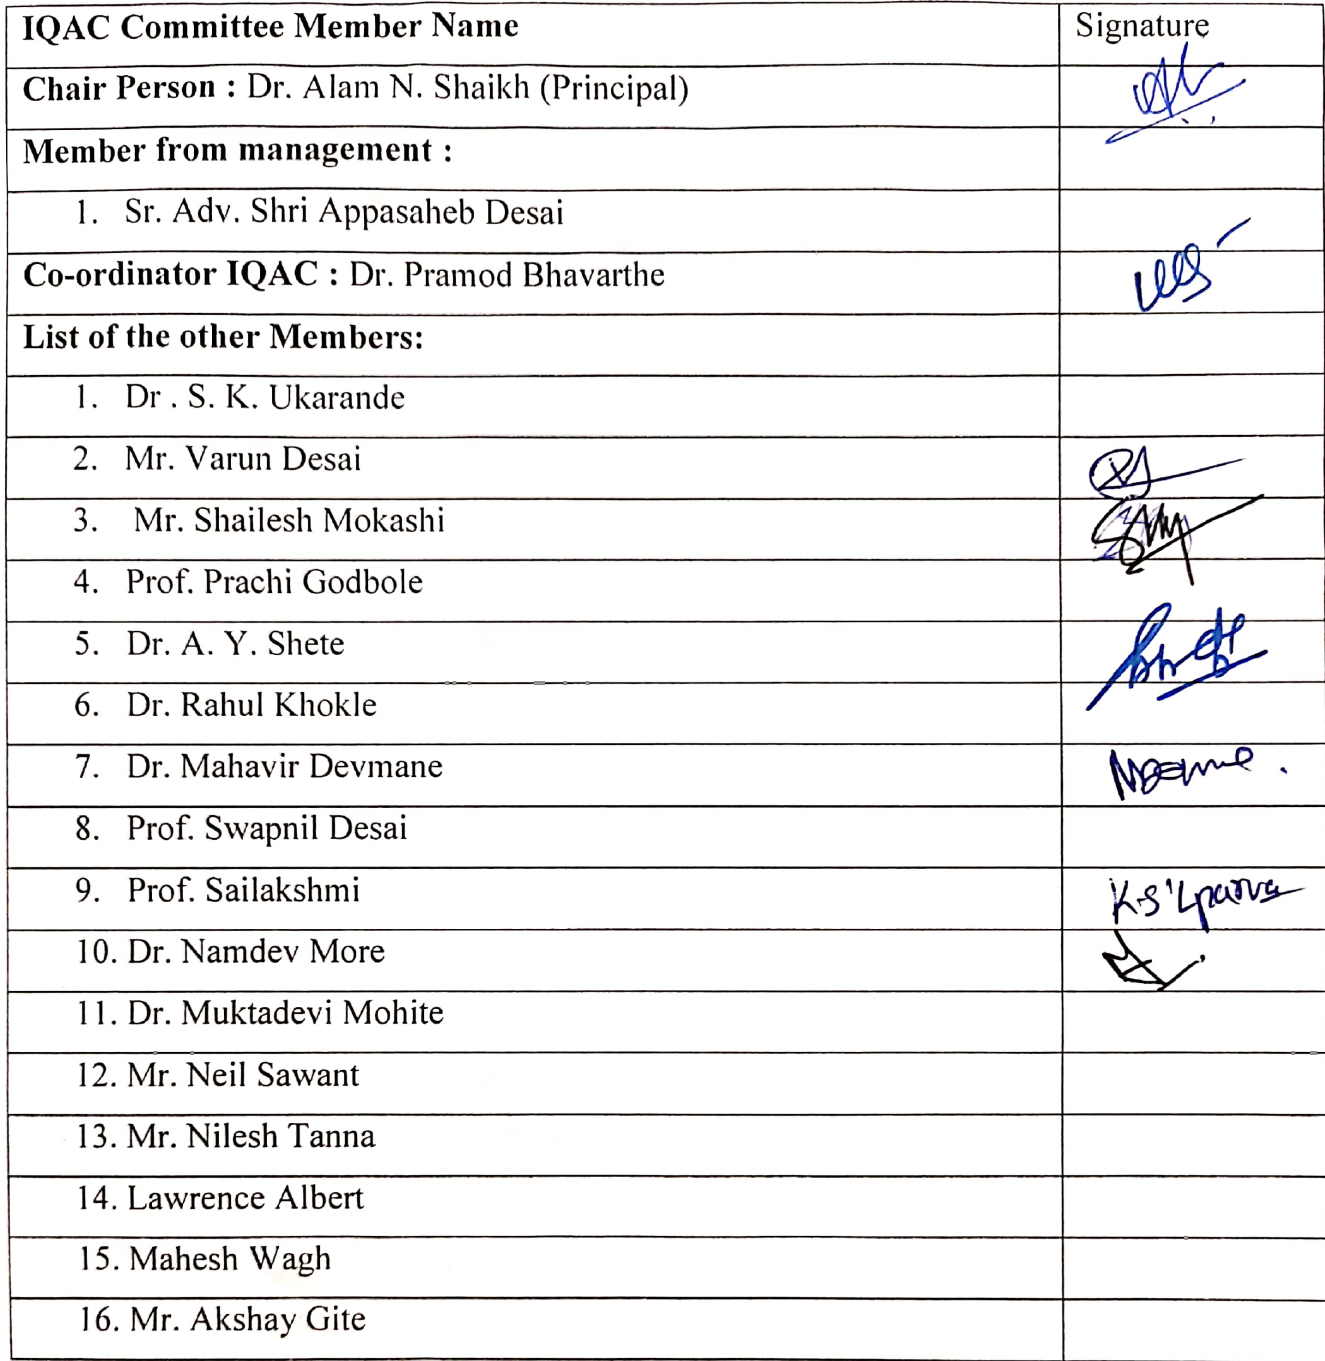 IQAC Committee Member Name Signature
Chair Person : Dr. Alam N. Shaikh (Principal)
Member from management :
1. Sr. Adv. Shri Appasaheb Desai
Co-ordinator IQAC : Dr. Pramod Bhavarthe
List of the other Members:
1. Dr . S. K. Ukarande
2. Mr. Varun Desai
3. Mr. Shailesh Mokashi
4. Prof. Prachi Godbole
5. Dr. A. Y. Shete
6. Dr. Rahul Khokle
7. Dr. Mahavir Devmane
8. Prof. Swapnil Desai
9. Prof. Sailakshmi
10. Dr. Namdev More
11. Dr. Muktadevi Mohite
12. Mr. Neil Sawant
13. Mr. Nilesh Tanna
14. Lawrence Albert
15. Mahesh Wagh
16. Mr. Akshay Gite